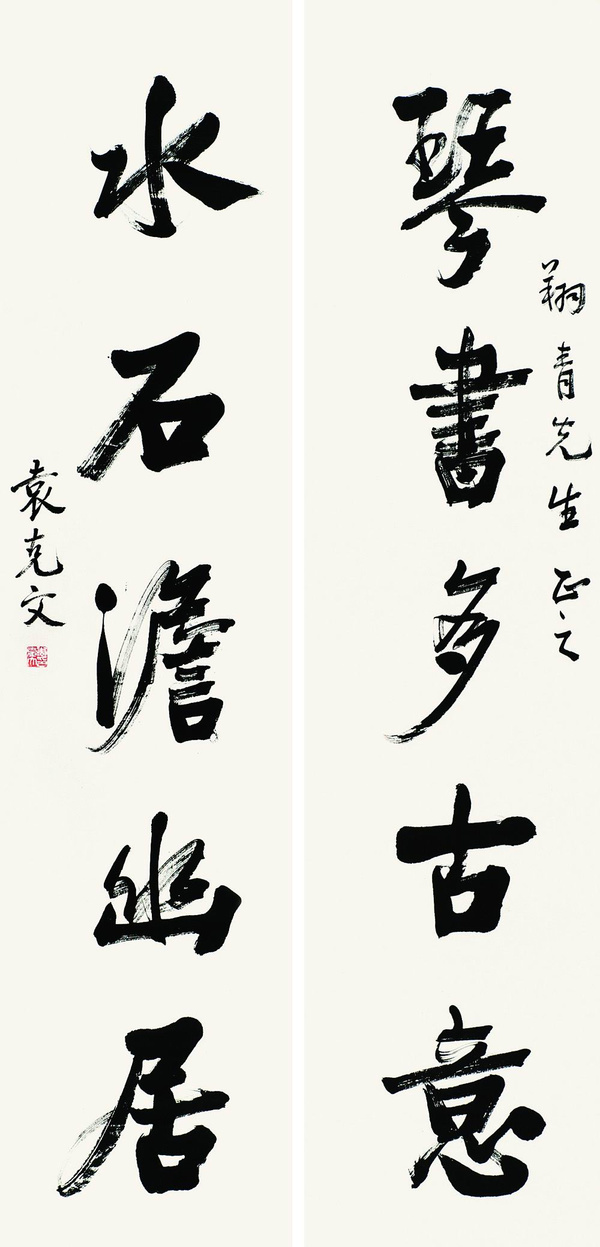 翔青先生正之
琴書多古意
水石澹幽居
袁克文